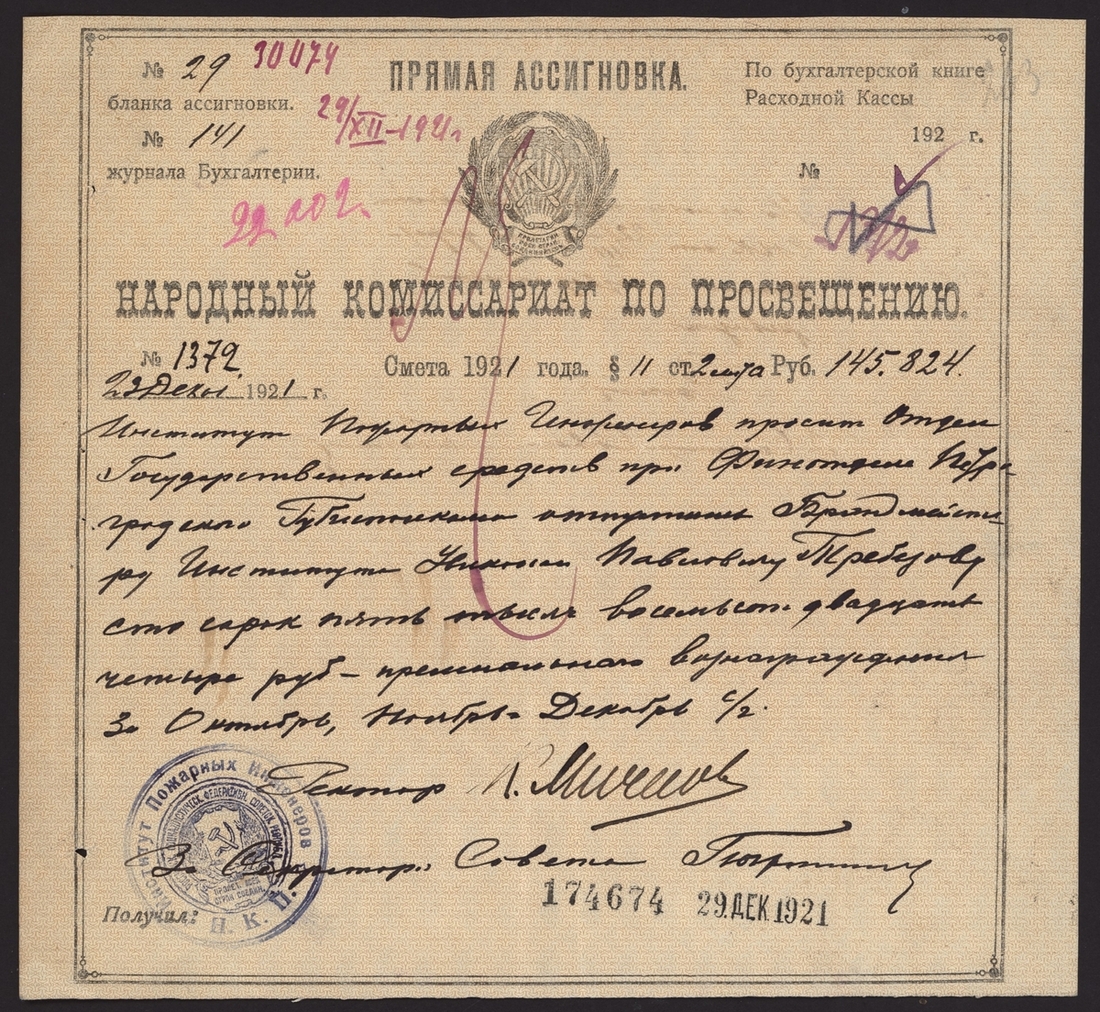 № 29 30074
бланка ассигновки.
№ 141 29/XII-1921г.
журнала Бухгалтерии.
ПРЯМАЯ АССИГНОВКА.
По бухгалтерской книге
Расходной Кассы
192 г.
№
НАРОДНЫЙ КОМИССАРИАТ ПО ПРОСВЕЩЕНИЮ.
№ 1379
23 Декаб 1921 г.
Смета 1921 года. § 11 ст. 2 Руб. 145.824.
Институт Пожарных Инженеров просит Отдел
Государственных средств при Финотделе Петро-
градского Губисполкома отпустить Брандмейсте-
ру Института Николаю Павловичу Требезову
сто сорок пять тысяч восемьсот двадцать
четыре руб - премиального вознаграждения
За Октябрь, Ноябрь Декабрь с/г.
Ректор
За Секретаря Совета
Институт Пожарных Инженеров
Н. К. П.
Получил:
174674 29.ДЕК 1921